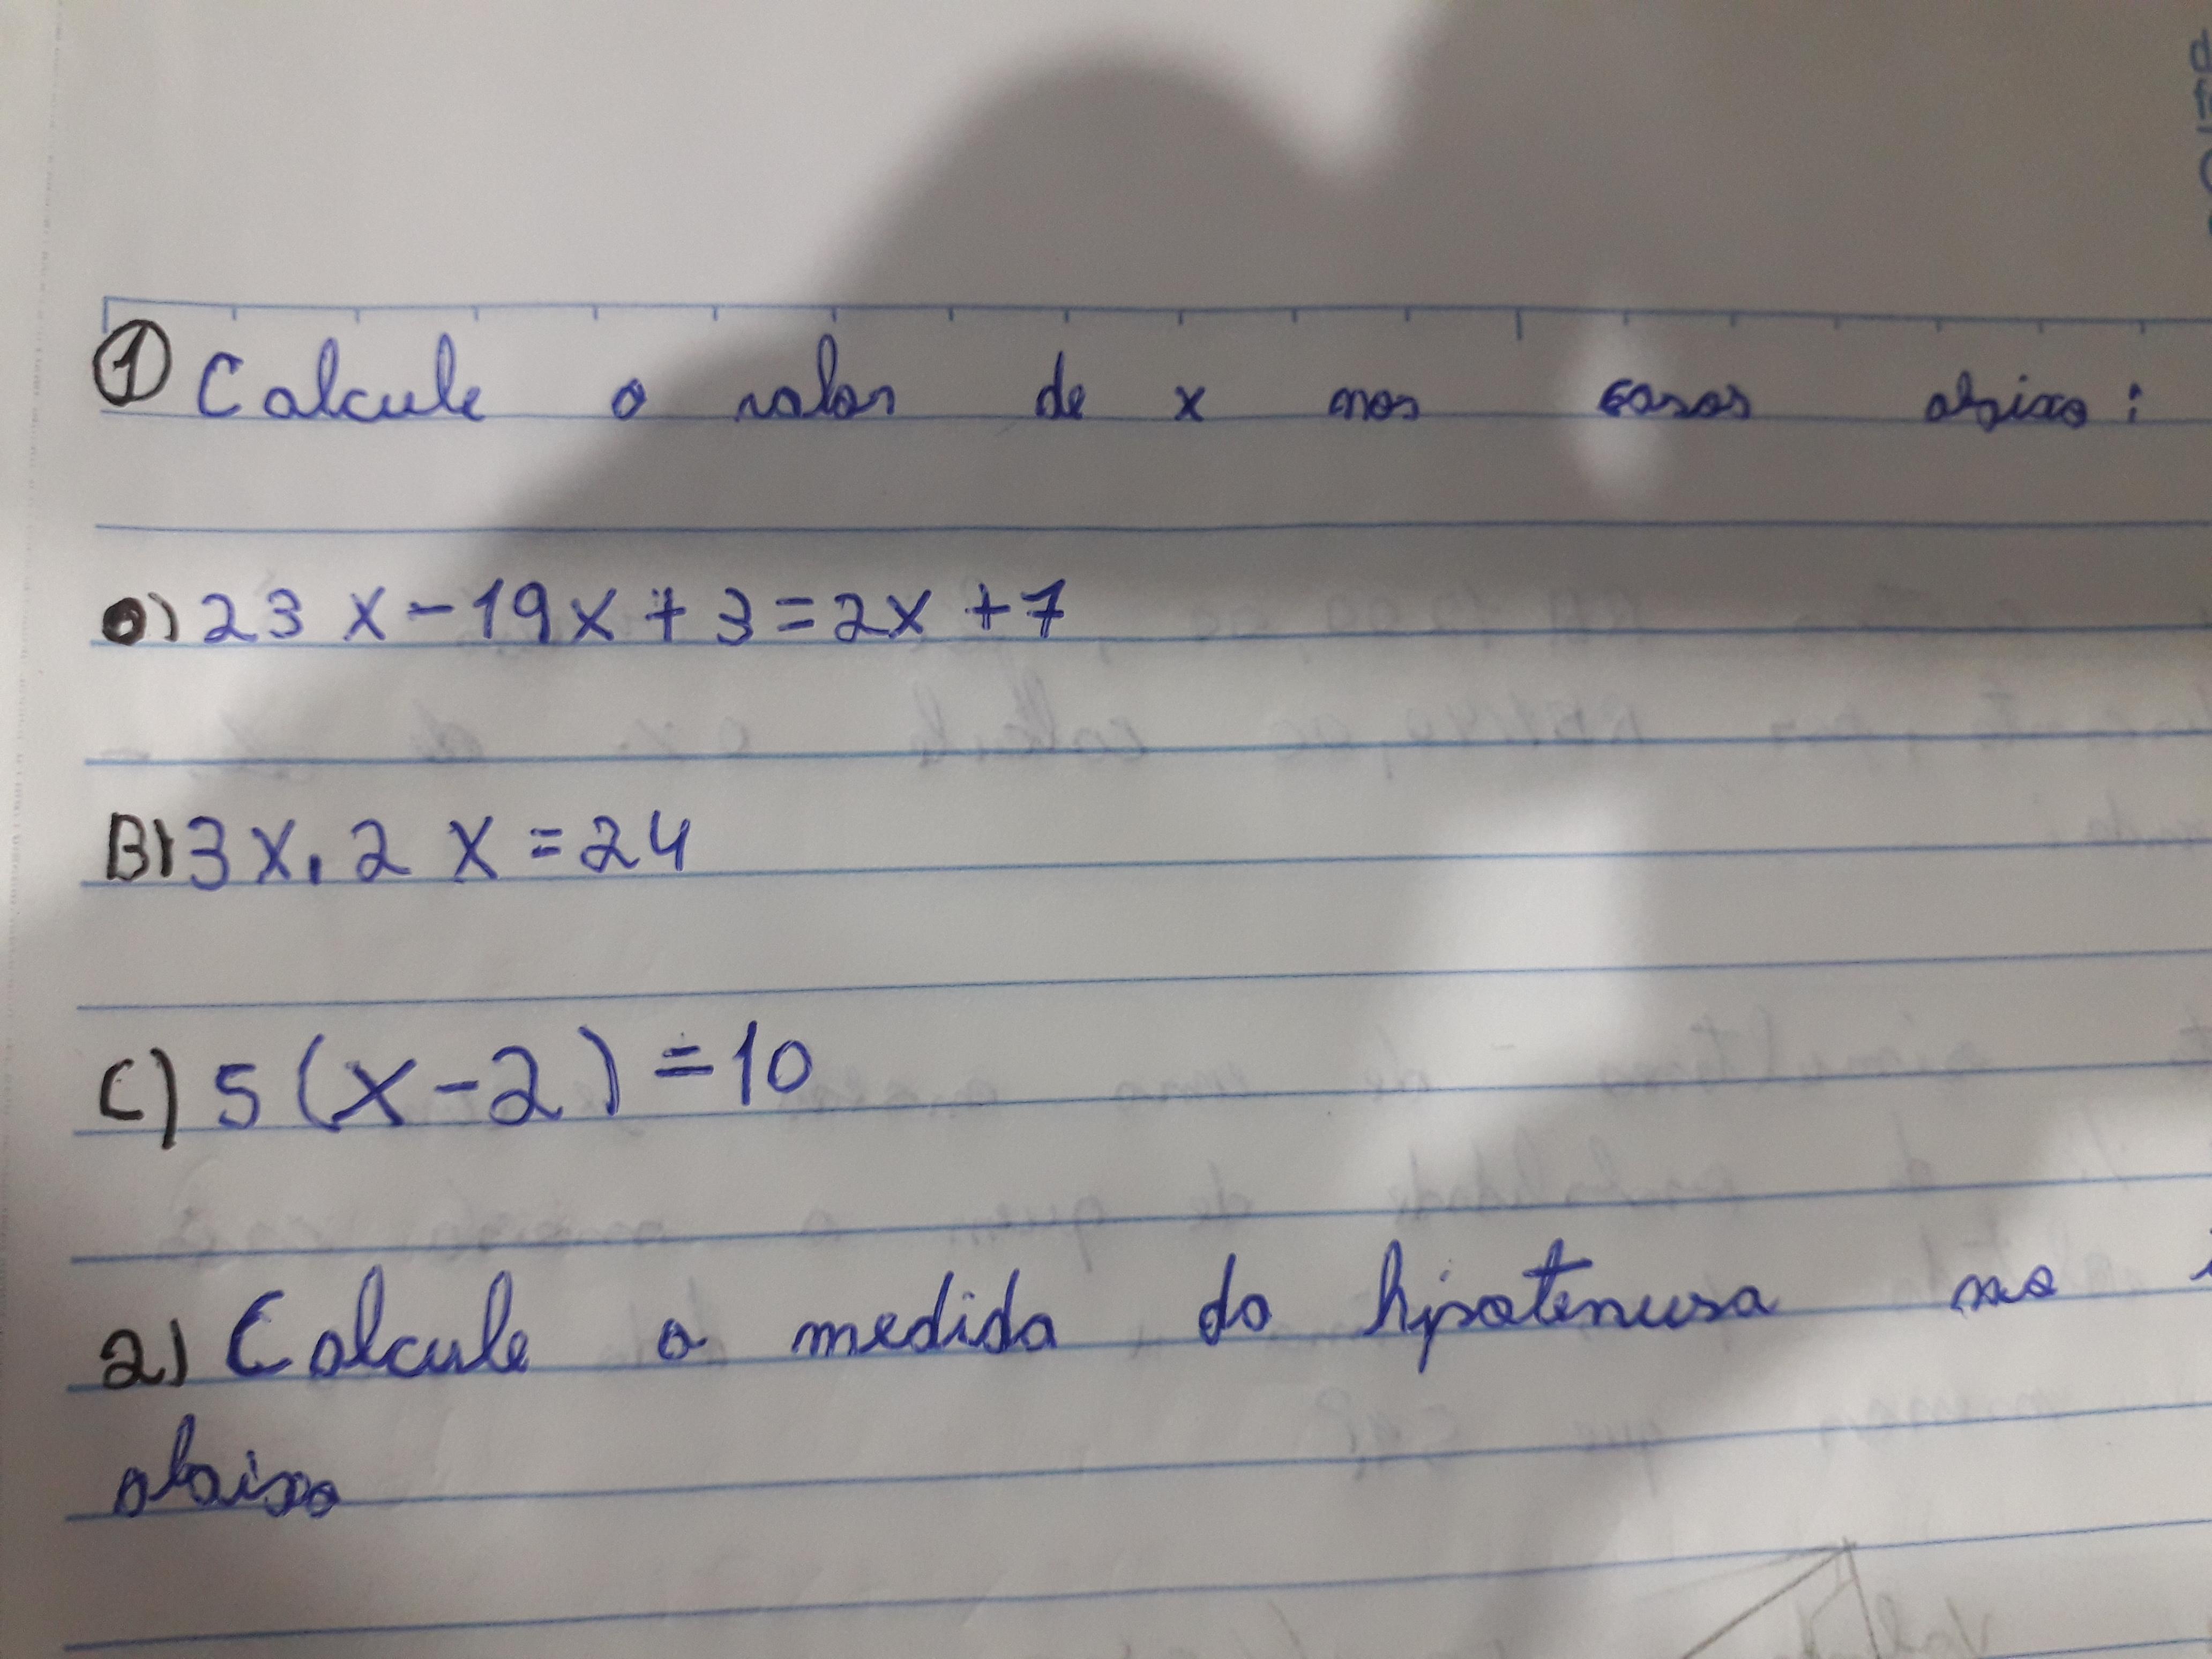 1 Calcule o valor de x nos casos abaixo:
a) 23x-19x+3=2x+7
B) 3x.2x=24
C) 5(x-2)=10
2) Calcule a medida da hipotenusa no
abaixo